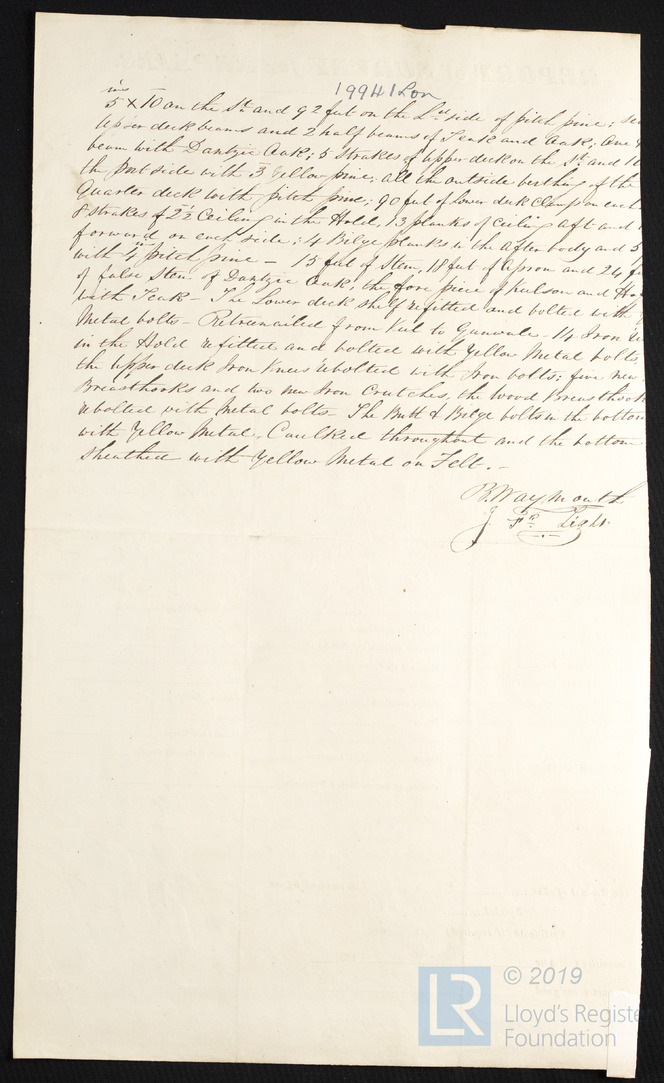 19941 Lon
ins
5 x 10 on the St. and 92 feet on the Ld side of pitch pine;
Upper deck beams and 2 half beams of Teak and Oak; One
beam with Dantzic Oak; 5 Strakes of Upper deck on the St. and
the Port side with 3 Yellow pine; all the outside berthing of the
Quarter deck with pitch pine; 90 feet of lower deck Clamp on each
8 strakes of 2½ Ceiling in the Hold, 13 planks of Ceiling aft and
forward on each side; 4 Bilge planks in the After body and 5
with 4 pitch pine — 15 feet of Stem, 18 feet of Apron and 24
of false Stem of Dantzic Oak, the fore piece of Kelson and
with Teak — The Lower deck shelf refitted and bolted with
Metal bolts — Retreenailed from Keel to Gunwale — 14 Iron
in the Hold refitted and bolted with Yellow Metal bolts
the Upper deck Iron Knees rebolted with Iron bolts; five new
Breasthooks and two new Iron Crutches, the Wood Breasthook
rebolted with Metal bolts The Butt & Bilge bolts in the bottom
with Yellow Metal. Caulked throughout and the bottom
Sheathed with Yellow Metal on Felt. —
B. Waymouth
J. Light
LR
© 2019
Lloyd's Register
Foundation